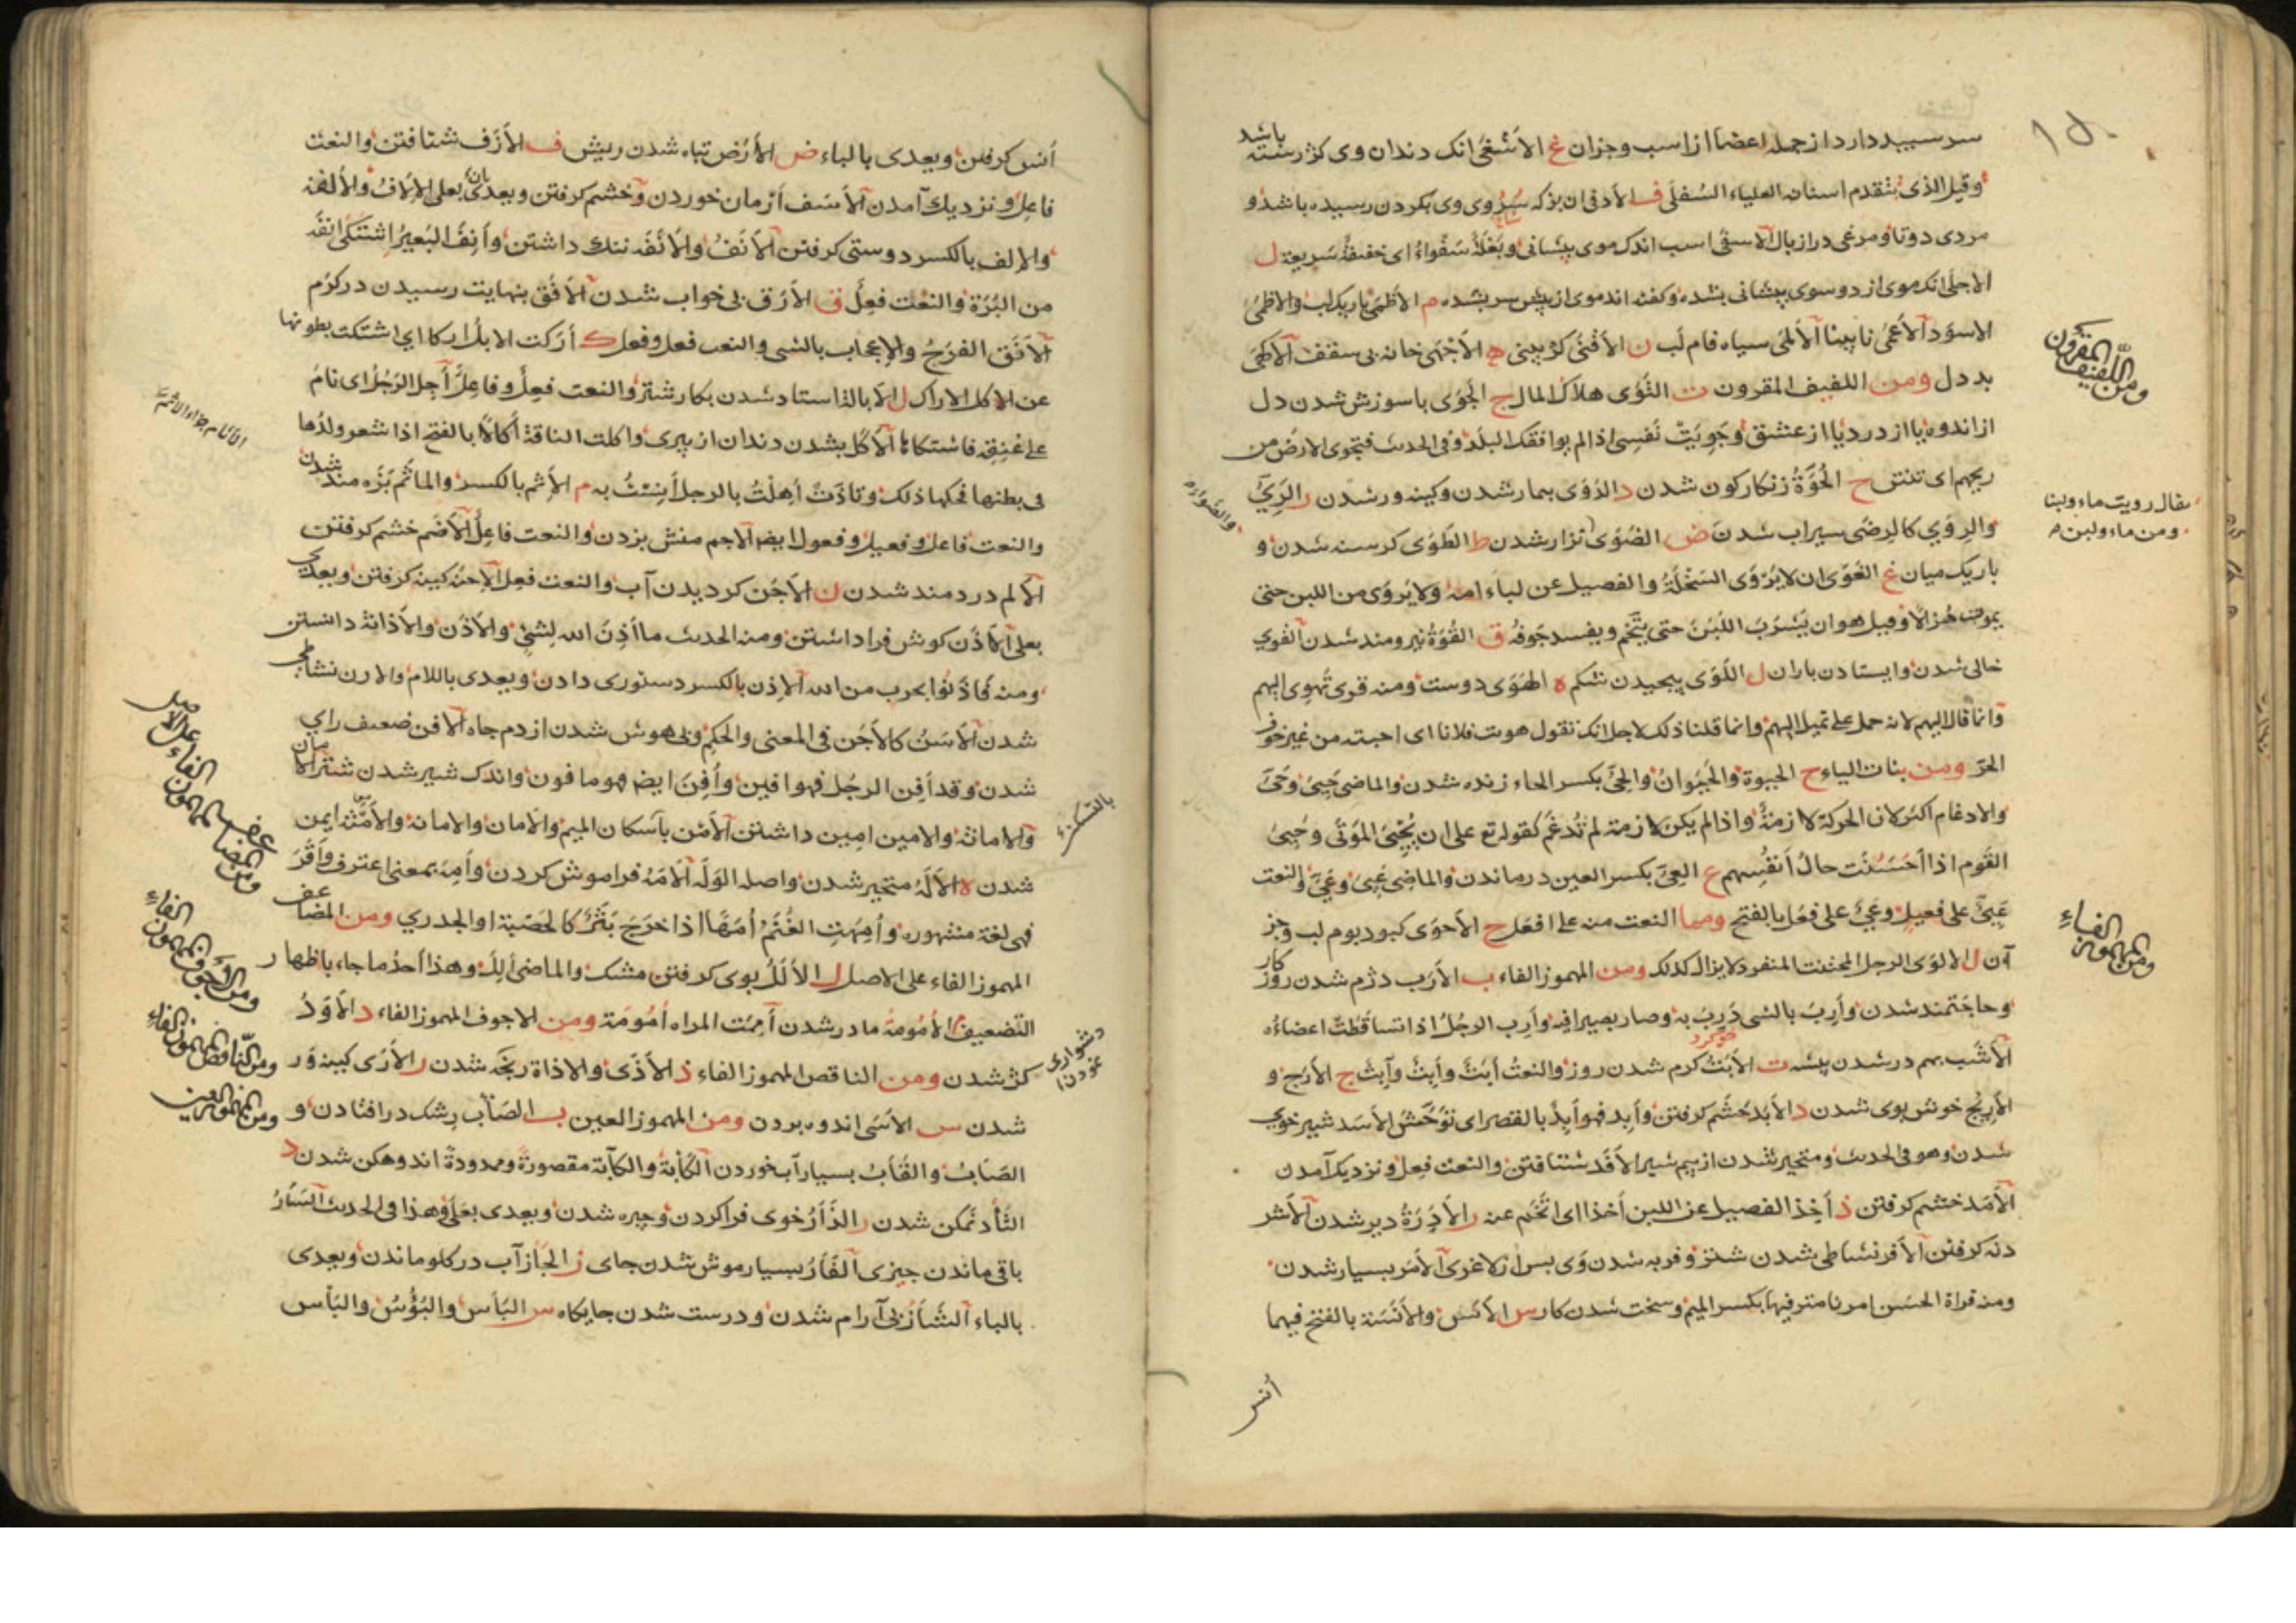 سر سبید دارد از جمله اعضاا از اسب وجزان غ الأشغی انک دندان وی کژ رسته باشد
وقیل الذی تتقدم اسنانه العلیاء السُفلَی ف الأدفی ان بز که سُرُوی وی بکردن رسیده باشد و
مردی دوتا ومرغی دراز بال الأسفی اسب اندک موی پیشانی وبَغْلَةٌ سَفْواءُ ای خفیفةٌ سَریعة ل
الاجلی انک موی از دو سوی پیشانی بشده وکفته اند موی از پیش سر بشده م الأظمی باریک لب والاظمی
الاسود الأعمی نابینا الألمی سیاه فام لب ن الأقنی کژ بینی ه الأجْهَی خانه بی سقف الأکهَی
بد دل ومن اللفیف المقرون ت التَّوَی هلاک المال ج الجَوَی باسوزش شدن دل
از اندوه یا از درد یا از عشق وجَوِیَتْ نَفسِی اذا لم یوافقک البلد وفی الحدیث فتجوی الارض من
ریحهم ای تنتن ح الحُوَّةُ زنکار کون شدن د الدَوَی بیمار شدن وکینه ور شدن ر الرِیّ
والرِوَی کالرِضی سیراب شدن ض الضَوَی نزار شدن ط الطَوَی کرسنه شدن و
باریک میان غ الغَوَی ان لا یَرْوَی السَخْلَةُ والفصیل عن لباء امه ولا یَروَی من اللبن حتی
یموت هُزالاً وقیل هو ان یَشرَبَ اللبَنَ حتی یتَّخِم ویفسد جَوفُه ق القُوَةُ نیرومند شدن القوی
خالی شدن وایستادن باران ل اللَوَی پیچیدن شکم ه الهَوَی دوست ومنه قری تَهوِی الیهم
وانما قال الیهم لانه حمل علی تمیل الیهم وانما قلنا ذلک لاجل انک تقول هویت فلانا ای احببته من غیر حرف
الجر ومن بنات الیاء ح الحیوة والحَیَوانُ والحِیّ بکسر الحاء زنده شدن والماضی حَیِیَ وحَیَّ
والادغام اکثر لان الحرکة لازمةٌ واذا لم یکن لازمة لم تُدغَم کقوله تع علی ان یُحْیِیَ المَوتَی وحَیِیَ
القَوم اذا حَسُنَت حالُ اَنفُسِهم ع العِیّ بکسر العین درماندن والماضی عَیِیَ وعَیَّ والنعت
عَیِیٌّ علی فعیلٍ وعَیٌّ علی فَعْل بالفتح ومما النعت منه علی افعَل ح الأحوَی کبود بوم لب وجز
آن ل الالوَی الرجل المجتنب المنفرد لا یزال کذلک ومن المهموز الفاء ب الأرَب دژم شدن روز کار
وحاجتمند شدن وأرِبَ بالشی دَرِبَ به وصار بصیرا فیه وأرِب الرجُل اذا تساقَطَت اعضاءُه
الأشَب بهم در شدن بیشه ت الأبَتُ کرم شدن روز والنعتُ أبِتٌ وأبْتٌ وآبِتٌ ج الأرَج و
الأریج خوش بوی شدن د الأبَد خَشَم کرفتن وأبِد فهو أبِدٌ بالقصر ای تَوَحَّشَ الأسَد شیر خوی
شدن وهو فی الحدیث ومتحیر شدن از بیم شیر الأفَد شتافتن والنعت فَعِل ونزدیک آمدن
الأمَد خشم کرفتن ذ أخِذ الفصیل عن اللبن أخذا ای اتَّخَم عنه ر الأُدْرَةُ دبر شدن الأشر
دنه کرفتن الأفر نشاطی شدن شتر وفربه شدن وی بس از لاغری الأمَر بسیار شدن
ومنه قراة الحسن امرنا مترفیها بکسر المیم وسخت شدن کار س الأنَس والأنَسَة بالفتح فیهما
أنس
ومن اللفیف المقرون
یقال رویت ماء ولبنا
ومن ماء ولبن
ومن المهموز الفاء
أنس کرفتن ویعدی بالباء ض الأرَض تباه شدن ریش ف الأزَف شتافتن والنعت
فاعل ونزدیک آمدن الأسَف أرمان خوردن وخشم کرفتن ویعدی بعلی الإلافُ والألفة
والإلف بالکسر دوستی کرفتن الأنَفُ والأنَفَه ننک داشتن وأنِفَ البَعیرُ اِشتکَی انفَه
من البُرَة والنعْت فَعِلٌ ق الأرَق بی خواب شدن الأفَق بنهایت رسیدن در کرَم
الأنَق الفرَحُ والإعجاب بالشی والنعت فَعِل وفَعِیل ک أرَکت الابل ارکا ای اشتکت بطونها
عن اکل الاراک ل الأبالة استاد شدن بکار شتر والنعت فَعِلٌ وفاعِلٌ أجِل الرَجُلُ ای نامُ
علی عُنُقِه فاشتکاها الأکَل بشدن دندان از پیری واکلت الناقة أکالاً بالفتح اذا اشعر ولدُها
فی بطنها فحکها ذلک وتاذَتْ أهِلْتُ بالرجل أنِسْتُ به م الأثم بالکسر والماثَم بَزَه مند شدن
والنعت فاعل وفعیل وفعول ایضا الأجم منش بزدن والنعت فاعِلٌ الأضَم خشم کرفتن
الألم دردمند شدن ن الأجَن کردیدن آب والنعت فعِل الأحنُ کینه کرفتن ویعدی
بعلی الأذَن کوش فرا داشتن ومنه الحدیث ما أذِنَ الله لِشَیْءٍ والأذَن والأذانة دانستن
ومنه فَاذَنُوا بحرب من الله الإذن بالکسر دستوری دادن ویعدی باللام والارن نشاطی
شدن الأسَنُ کالأجَن فی المعنی والحکم وبی هوش شدن از دم جاه الأفن ضعیف رای
شدن وقد أفِن الرجُل فهو افین وأُفِنَ ایض فهو مافون واندک شیر شدن شتر
والامانة والامین امین داشتن الأمْن بآسکان المیم والأمان والامانة والأمَنَة ایمن
شدن ه الألَهُ متحیر شدن واصله الوَلَه الأمَهُ فراموش کردن وأمِهَ بمعنی اعترف وأقَرَّ
فهی لغة مشهوره وأمِهَتِ الغَنَمُ أمَهًا اذا خَرَجَ بَثَرٌ کالحَصَبَة او الجدری ومن المضاعف
المهموز الفاء علی الاصل ل الألَلُ بوی کرفتن مشک والماضی ألِلَ وهذا أحدُ ما جاء باظهار
التضعیف م الأمُومةُ مادر شدن أمِمَت المراه أمُومَة ومن الاجوف المهموز الفاء د الأوَدُ
کژ شدن ومن الناقص المهموز الفاء ذ الأذَی والاذاة رنجه شدن ر الأرَی کینه ور
شدن س الأسَی اندوه بردن ومن المهموز العین ب الصَأب رشک در افتادن و
الصَأبُ والقَأبُ بسیار آب خوردن الکَأبَة والکآبة مقصورةً وممدودةً اندوهکن شدن د
الثَأد نمکن شدن ر الذَأرُ خوی فرا کردن وجیره شدن ویعدی بعلی وهذا فی الحدیث السَأرُ
باقی ماندن جیزی الفَأرُ بسیار موش شدن جای ز الجأز آب در کلو ماندن ویعدی
بالباء الشَأزُ بی آرام شدن ودرست شدن جایکاه س البَأس والبُؤْسُ والبَأس
ومن المضاعف المهموز الفاء علی الاصل
ومن الاجوف المهموز الفاء
ومن الناقص المهموز الفاء
ومن المهموز العین
دشواری